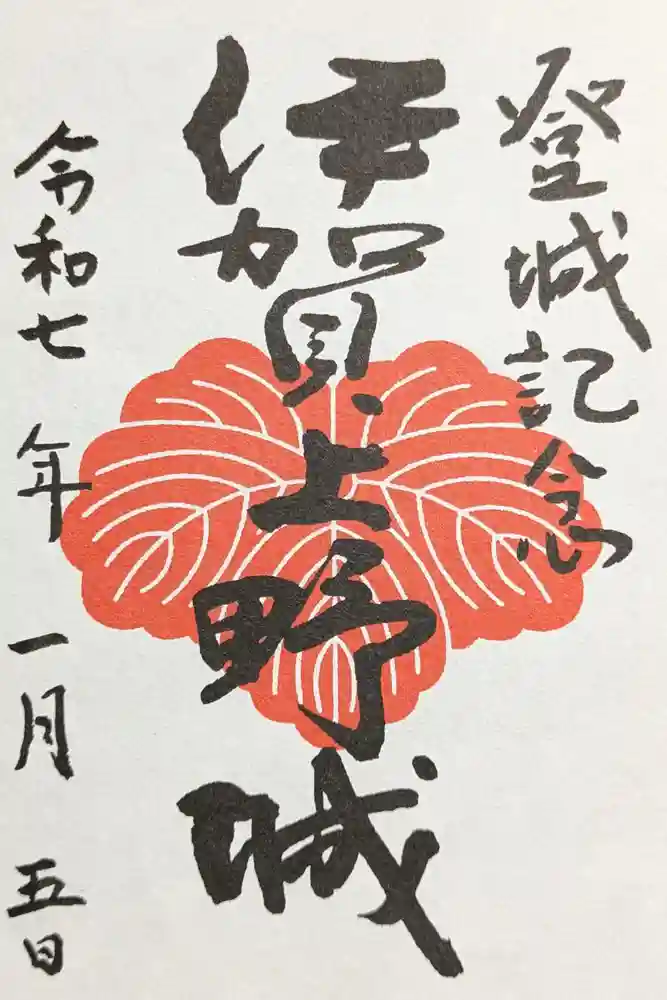 登城記念
伊賀上野城
令和七年一月五日